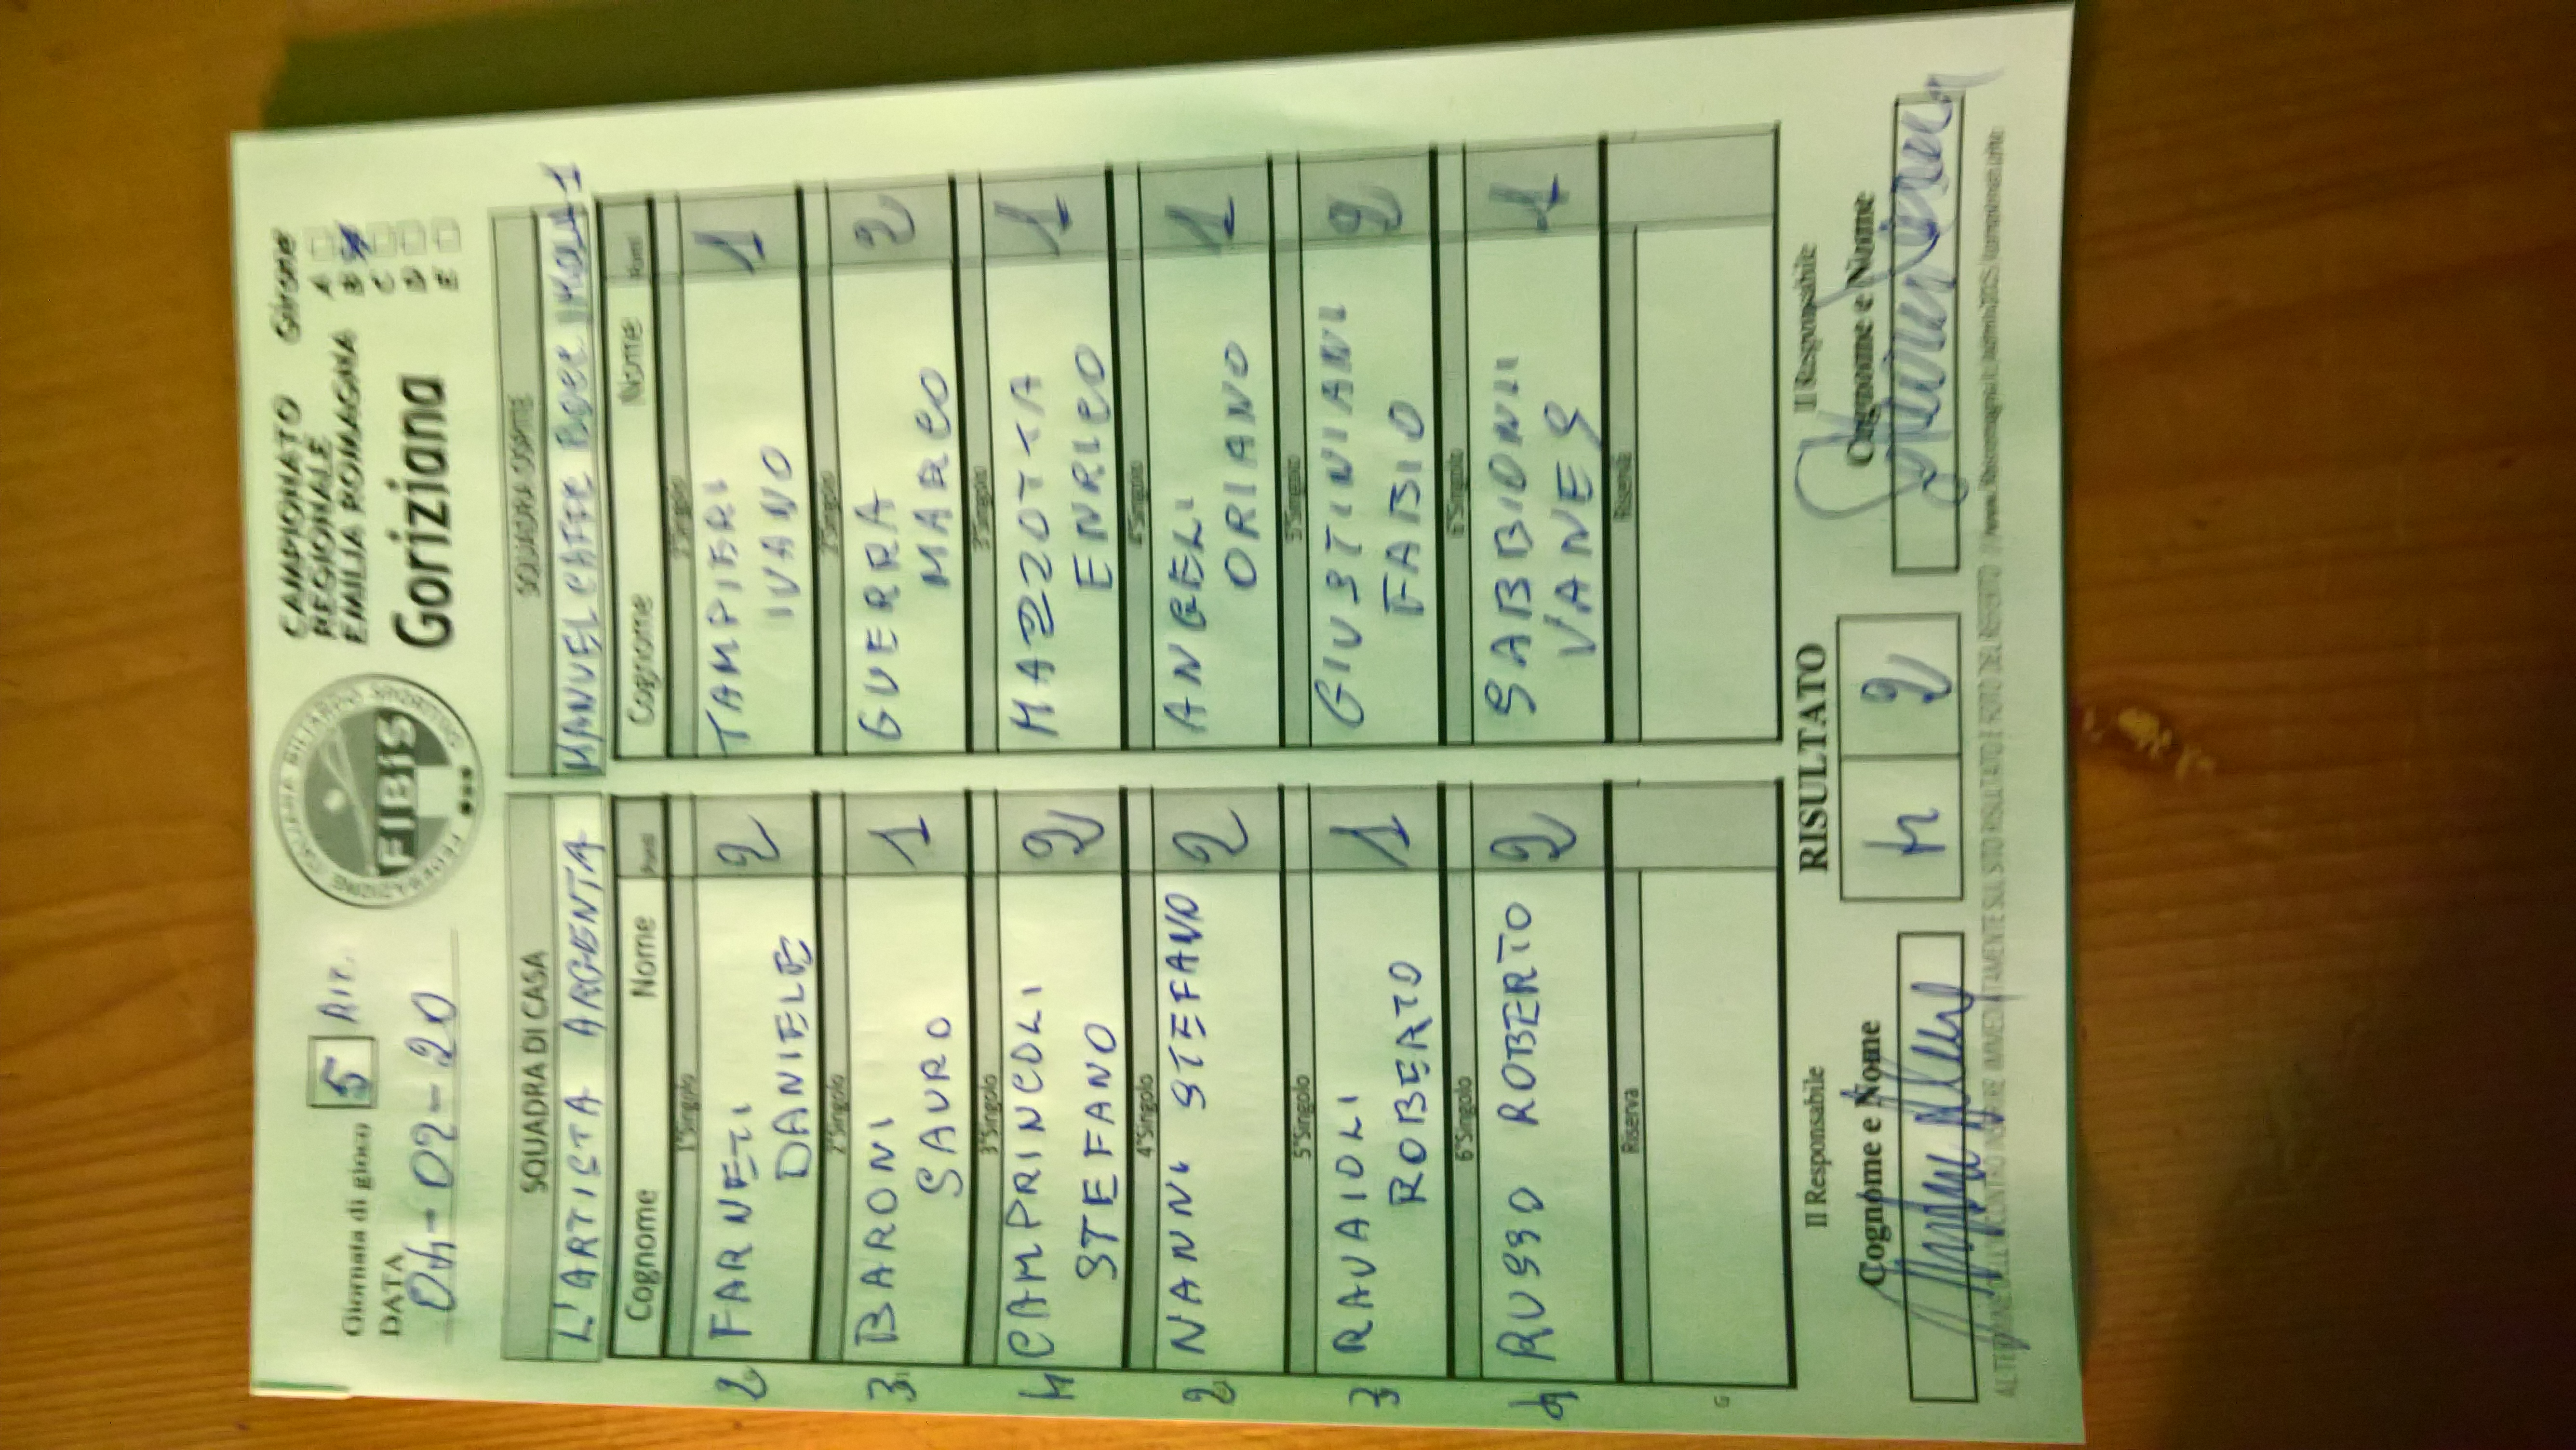 Giornata di gioco 5 RIT.
DATA
04-02-20
FEDERAZIONE ITALIANA BILIARDO SPORTIVO
FIBIS
CAMPIONATO
REGIONALE
EMILIA ROMAGNA
Goriziana
Girone
A
B
C
D
E
SQUADRA DI CASA
L'ARTISTA ARGENTA
Cognome Nome Punti
1°Singolo
2 FARNETI 2
DANIELE
2°Singolo
3 BARONI 1
SAURO
3°Singolo
4 CAMPRINCOLI 2
STEFANO
4°Singolo
2 NANNI STEFANO 2
5°Singolo
3 RAVAIOLI 1
ROBERTO
6°Singolo
4 RUSSO ROBERTO 2
Riserva
G
SQUADRA OSPITE
MANUEL CAFFE IMOLA 1
Cognome Nome Punti
1°Singolo
TAMPIERI 1
IVANO
2°Singolo
GUERRA 2
MARCO
3°Singolo
MAZZOTTA 1
ENRICO
4°Singolo
ANGELI 1
ORIANO
5°Singolo
GIUSTINIANI 2
FABIO
6°Singolo
SABBIONI 1
VANES
Riserva
Il Responsabile
Cognome e Nome
RISULTATO
4 2
Il Responsabile
Cognome e Nome
IMMEDIATAMENTE SUL SITO RISULTATO E FOTO DEL REFERTO